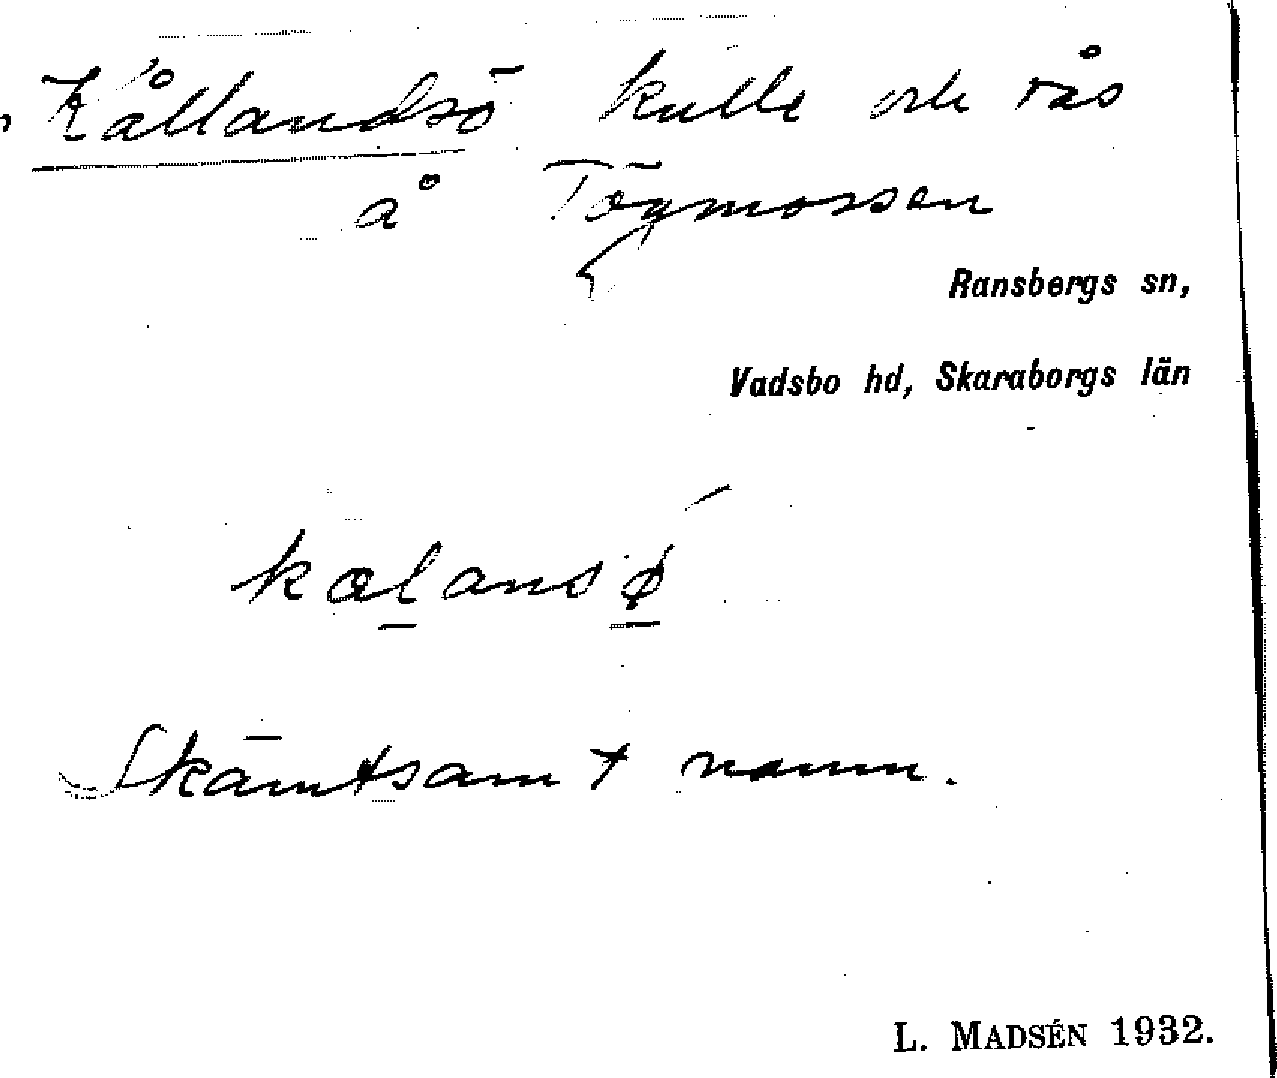 Kållandsö kulle och rås
å Tögmossen
Ransbergs sn,
Vadsbo hd, Skaraborgs län
kalansø
Skämtsamt namn.
L. MADSÉN 1932.